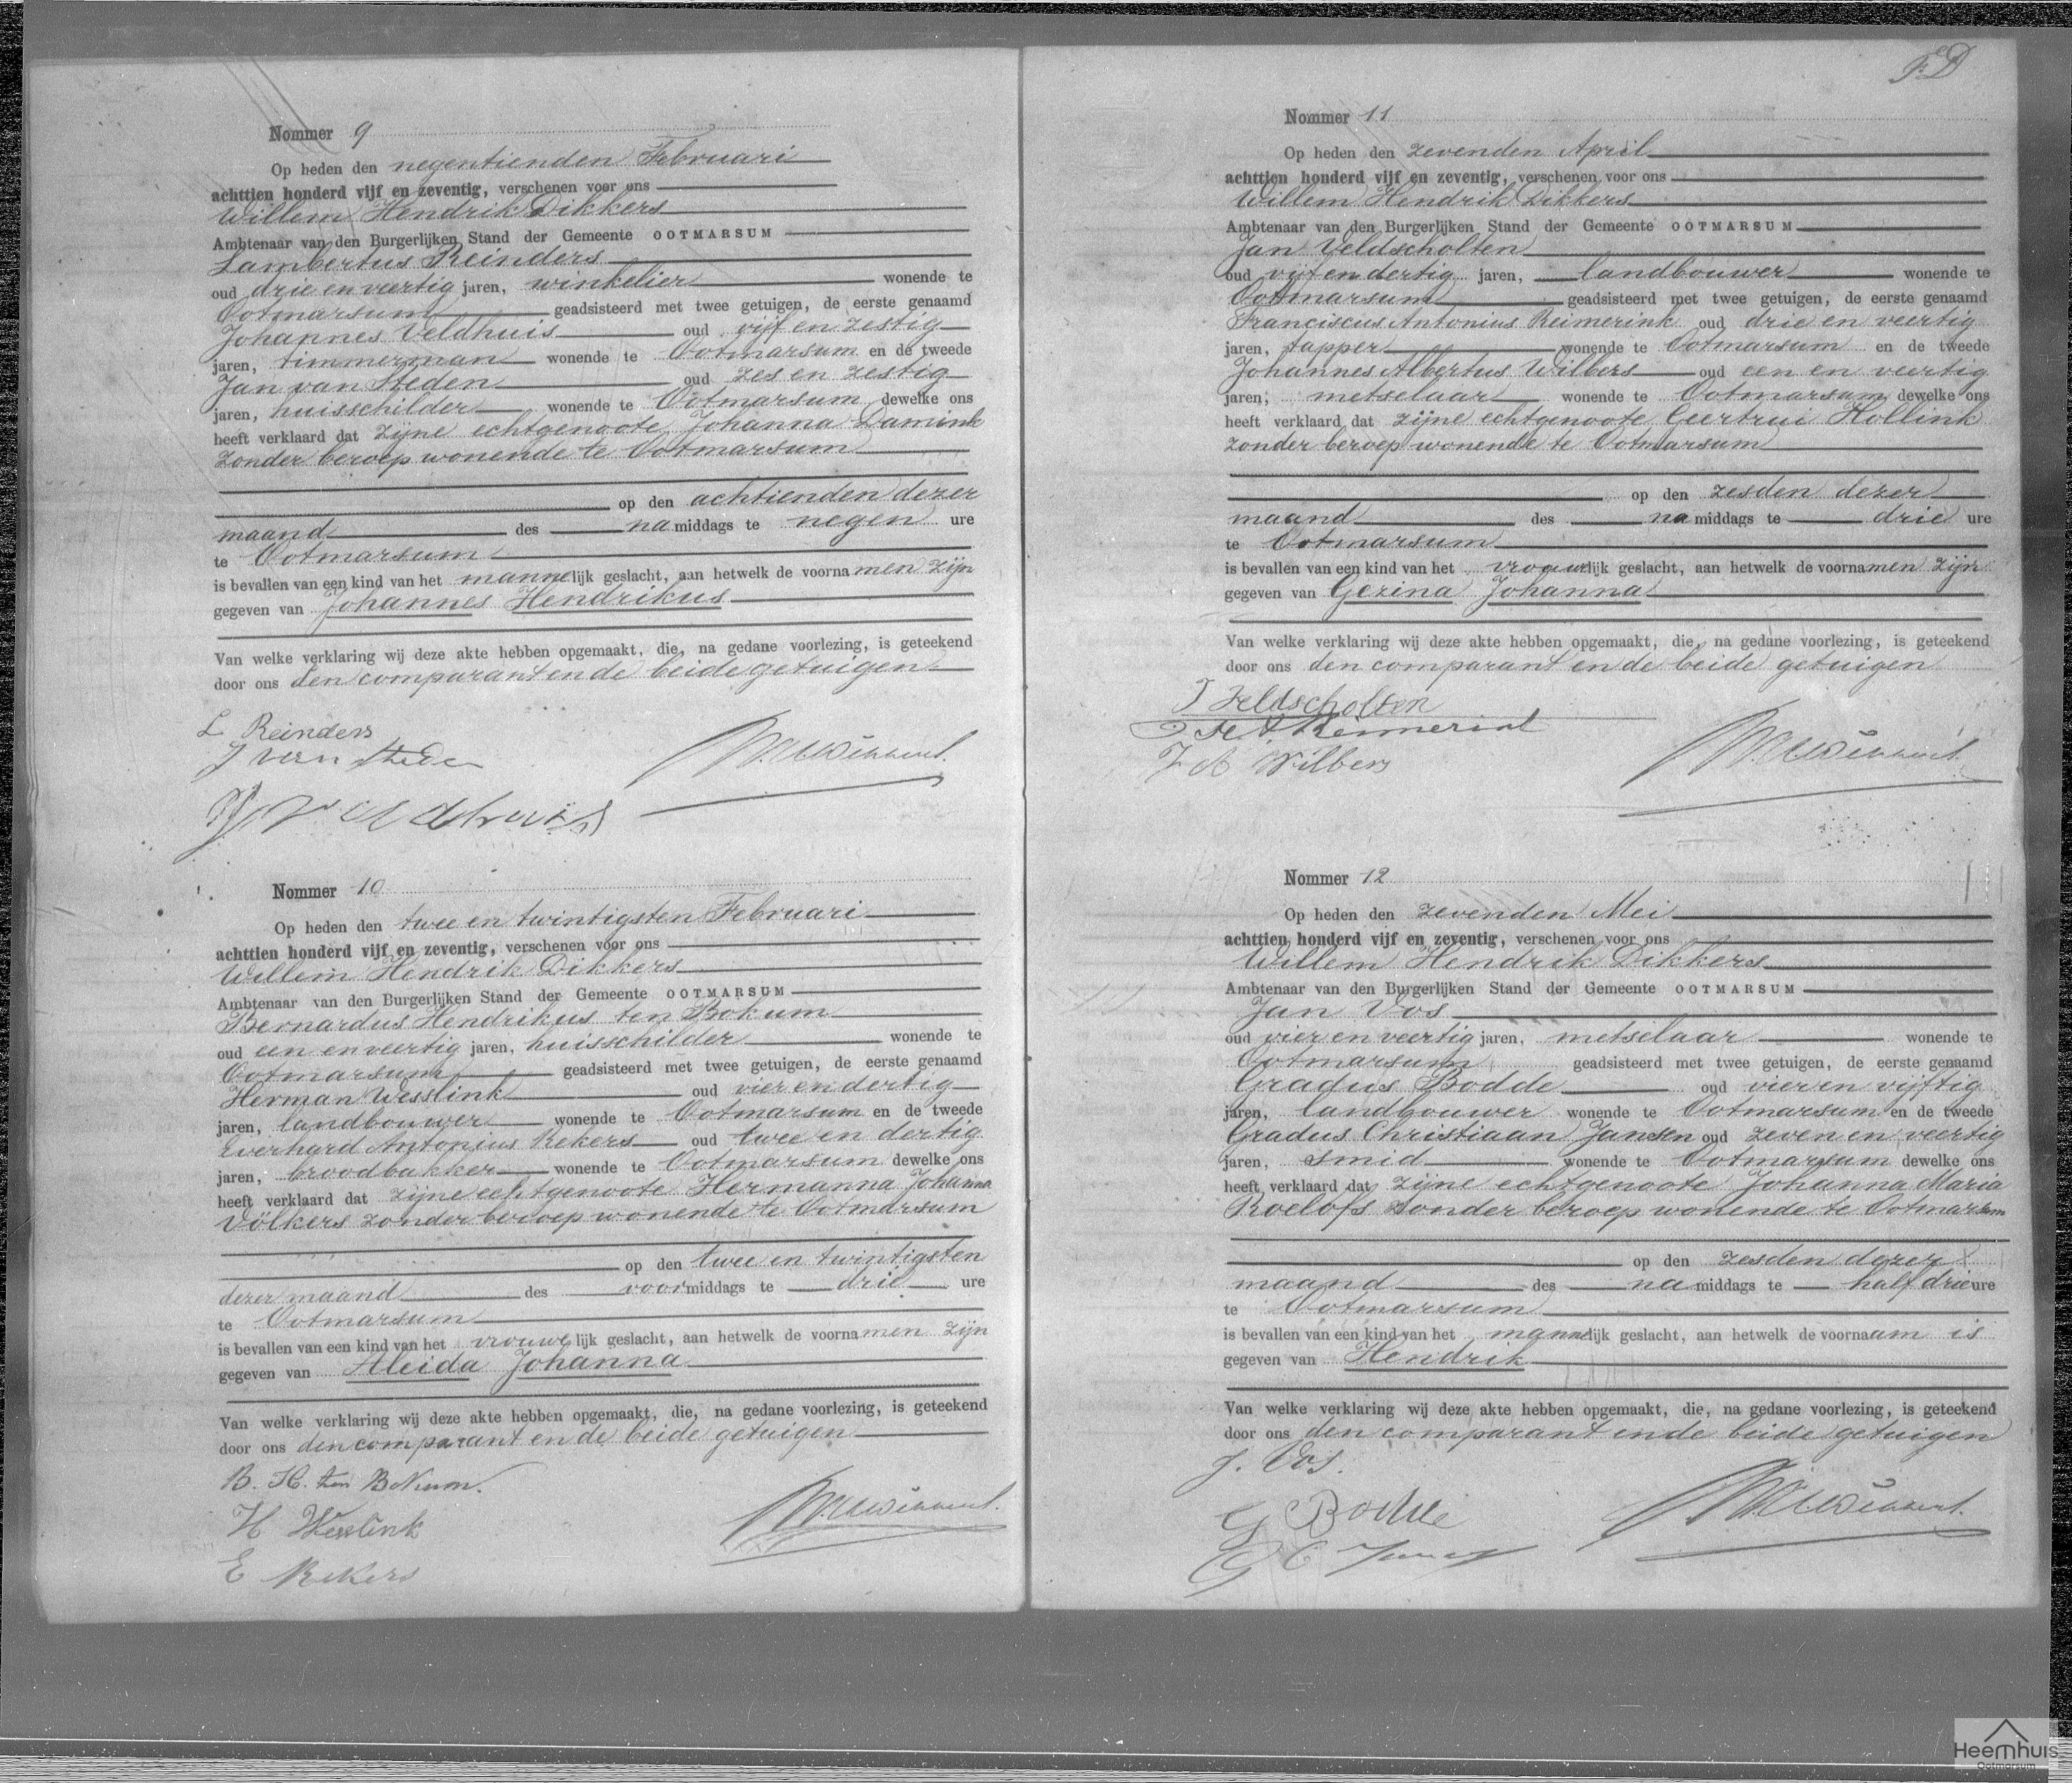 Nommer 9
Op heden den negentienden Februari
achttien honderd vijf en zeventig, verschenen voor ons
Willem Hendrik Dikkers
Ambtenaar van den Burgerlijken Stand der Gemeente OOTMARSUM
Lambertus Reinders
oud drie en veertig jaren, winkelier wonende te
Ootmarsum geadsisteerd met twee getuigen, de eerste genaamd
Johannes Veldhuis oud vijf en zestig
jaren, timmerman wonende te Ootmarsum en de tweede
Jan van Steden oud zes en zestig
jaren, huisschilder wonende te Ootmarsum dewelke ons
heeft verklaard dat zijne echtgenoote Johanna Damink
zonder beroep wonende te Ootmarsum
op den achtienden dezer
maand des namiddags te negen ure
te Ootmarsum
is bevallen van een kind van het mannelijk geslacht, aan hetwelk de voornamen zijn
gegeven van Johannes Hendrikus
Van welke verklaring wij deze akte hebben opgemaakt, die, na gedane voorlezing, is geteekend
door ons den comparant en de beide getuigen
L Reinders
J van Steden
J Veldhuis
Nommer 10
Op heden den twee en twintigsten Februari
achttien honderd vijf en zeventig, verschenen voor ons
Willem Hendrik Dikkers
Ambtenaar van den Burgerlijken Stand der Gemeente OOTMARSUM
Bernardus Hendrikus ten Bokum
oud een en veertig jaren, huisschilder wonende te
Ootmarsum geadsisteerd met twee getuigen, de eerste genaamd
Herman Wesslink oud vier en dertig
jaren, landbouwer wonende te Ootmarsum en de tweede
Everhard Antonius Rekers oud twee en dertig
jaren, broodbakker wonende te Ootmarsum dewelke ons
heeft verklaard dat zijne echtgenoote Hermanna Johanna
Völkers zonder beroep wonende te Ootmarsum
op den twee en twintigsten
dezer maand des voormiddags te drie ure
te Ootmarsum
is bevallen van een kind van het vrouwelijk geslacht, aan hetwelk de voornamen zijn
gegeven van Aleida Johanna
Van welke verklaring wij deze akte hebben opgemaakt, die, na gedane voorlezing, is geteekend
door ons den comparant en de beide getuigen
B. H. ten Bokum.
H Wesslink
E Rekers
Nommer 11
Op heden den zevenden April
achttien honderd vijf en zeventig, verschenen voor ons
Willem Hendrik Dikkers
Ambtenaar van den Burgerlijken Stand der Gemeente OOTMARSUM
Jan Veldscholten
oud vijf en dertig jaren, landbouwer wonende te
Ootmarsum geadsisteerd met twee getuigen, de eerste genaamd
Franciscus Antonius Reimerink oud drie en veertig
jaren, tapper wonende te Ootmarsum en de tweede
Johannes Albertus Wilbers oud een en veertig
jaren, metselaar wonende te Ootmarsum dewelke ons
heeft verklaard dat zijne echtgenoote Geertrui Hollink
zonder beroep wonende te Ootmarsum
op den zesden dezer
maand des namiddags te drie ure
te Ootmarsum
is bevallen van een kind van het vrouwelijk geslacht, aan hetwelk de voornamen zijn
gegeven van Gezina Johanna
Van welke verklaring wij deze akte hebben opgemaakt, die, na gedane voorlezing, is geteekend
door ons den comparant en de beide getuigen
J Veldscholten
J A Wilbers
Nommer 12
Op heden den zevenden Mei
achttien honderd vijf en zeventig, verschenen voor ons
Willem Hendrik Dikkers
Ambtenaar van den Burgerlijken Stand der Gemeente OOTMARSUM
Jan Vos
oud vier en veertig jaren, metselaar wonende te
Ootmarsum geadsisteerd met twee getuigen, de eerste genaamd
Gradus Bodde oud vier en vijftig
jaren, landbouwer wonende te Ootmarsum en de tweede
Gradus Christiaan Jansen oud zeven en veertig
jaren, smid wonende te Ootmarsum dewelke ons
heeft verklaard dat zijne echtgenoote Johanna Maria
Roelofs zonder beroep wonende te Ootmarsum
op den zesden dezer
maand des namiddags te half drie ure
te Ootmarsum
is bevallen van een kind van het mannelijk geslacht, aan hetwelk de voornaam is
gegeven van Hendrik
Van welke verklaring wij deze akte hebben opgemaakt, die, na gedane voorlezing, is geteekend
door ons den comparant en de beide getuigen
J. Vos.
G Bodde
Heemhuis
Ootmarsum